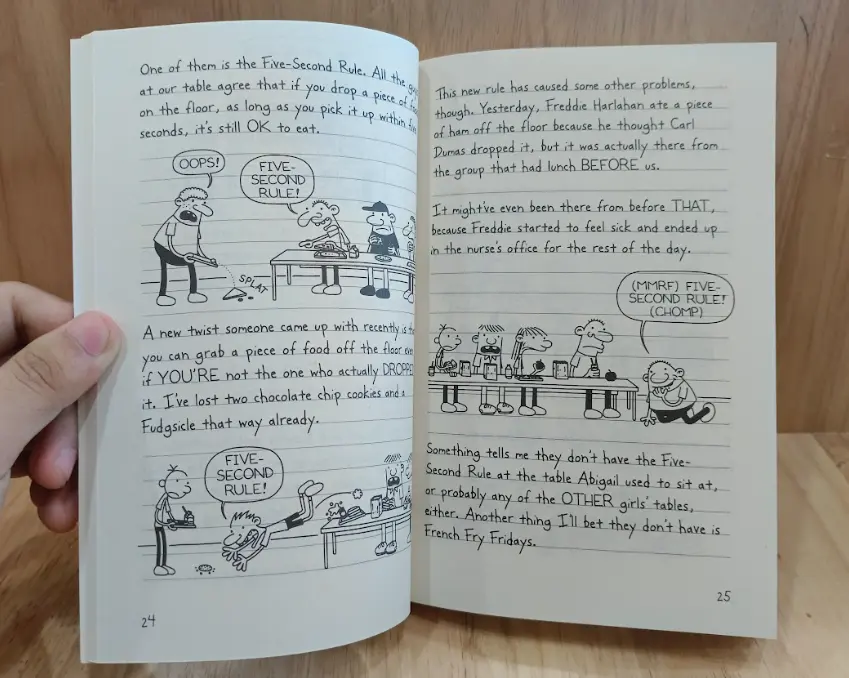 One of them is the Five-Second Rule. All the
at our table agree that if you drop a piece of
on the floor, as long as you pick it up within
seconds, it's still OK to eat.
OOPS!
FIVE-
SECOND
RULE!
SPLAT
A new twist someone came up with recently is
you can grab a piece of food off the floor
if YOU'RE not the one who actually DROPPED
it. I've lost two chocolate chip cookies and a
Fudgsicle that way already.
FIVE-
SECOND
RULE!
24
This new rule has caused some other problems,
though. Yesterday, Freddie Harlahan ate a piece
of ham off the floor because he thought Carl
Dumas dropped it, but it was actually there from
the group that had lunch BEFORE us.
It might've even been there from before THAT,
because Freddie started to feel sick and ended up
in the nurse's office for the rest of the day.
(MMRF) FIVE-
SECOND RULE!
(CHOMP)
Something tells me they don't have the Five-
Second Rule at the table Abigail used to sit at,
or probably any of the OTHER girls' tables,
either. Another thing I'll bet they don't have is
French Fry Fridays.
25